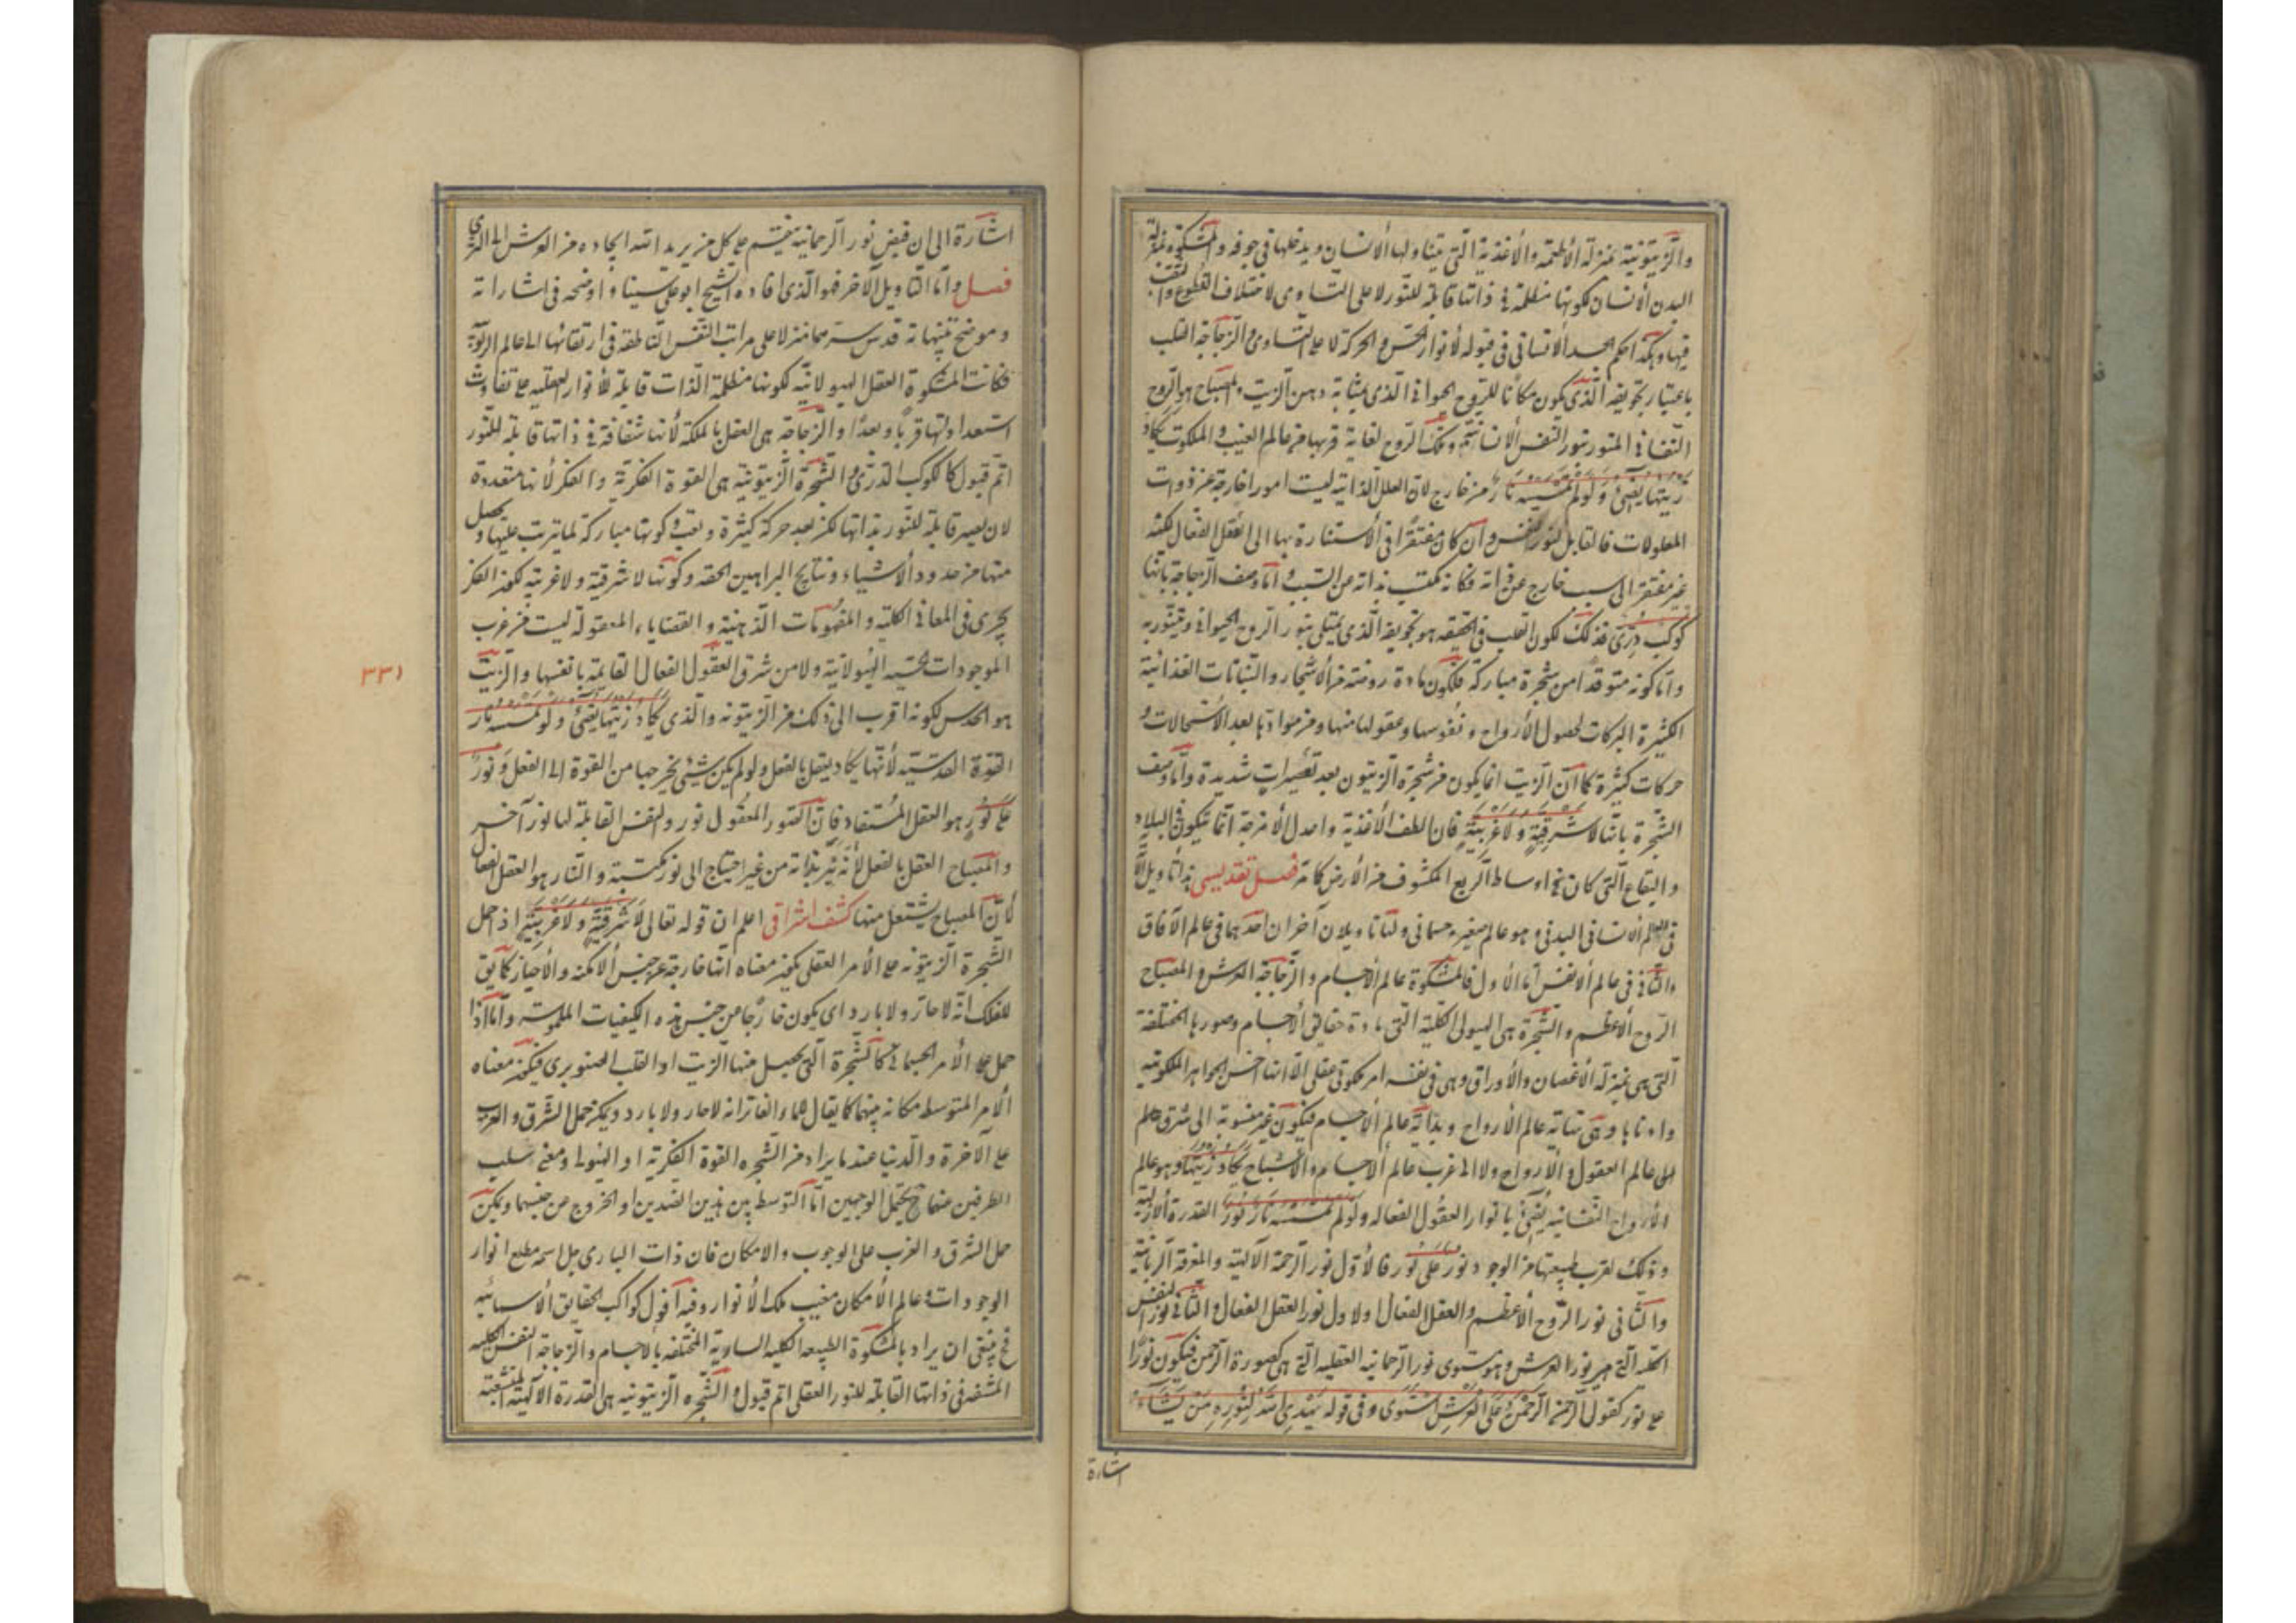 والزيتونية بمنزلة الأطعمة والأغذية التي يتناولها الأنسان ويدخلها في جوفه والمشكوة بمنزلة
البدن الأنسان لكونها مظلمة في ذاتها قابلة للنور لا على التساوى لاختلاف السطوح والثقب
فيها وهكذا حكم الجسد الأنساني في قبوله لأنوار الحس والحركة لا على التساوى والزجاجة القلب
باعتبار تجويفه الذي يكون مكانا للروح الحيوانى الذي بمثابة دهن الزيت والمصباح هو الروح
النفسانى المتنور بنور النفس الأنسانى ثم وتلك الروح لغاية قربها من عالم الغيب والملكوت يكاد
زيتها يضئ ولو لم تمسسه نار من خارج لان العلل الذاتية ليست امورا خارجة عن ذوات
المعلولات فالقابل لنور النفس وان كان مفتقرا في الاستنارة بها الى العقل الفعال لكنه
غير مفتقر الى سبب خارج عن ذاته فكانه مكتف بذاته عن السبب واما وصف الزجاجة بانها
كوكب درى فذلك لكون القلب في الحقيقة هو تجويفه الذي يمتلى بنور الروح الحيوانى ويتنور به
واما كونه متوقدا من شجرة مباركة فلكون مادة روغنه من الأشجار والنباتات الغذائية
الكثيرة البركات لحصول الأرواح ونفوسها وعقولها منها ومن موادها بعد الاستحالات و
حركات كثيرة كما ان الزيت انما يكون من شجرة الزيتون بعد تعصيرات شديدة واما وصف
الشجرة بانها لا شرقية ولا غربية فان الطف الأغذية واعدل الأمزجة انما تكون في البلاد
والبقاع التي كان في اوساط الربع المكشوف من الأرض كما مر فصل تقديسى هذا تاويل
في العالم الأنسانى البدني وهو عالم صغير جسمانى ولنا تاويلان آخران احدهما في عالم الآفاق
والثانى في عالم الأنفس اما الأول فالمشكوة عالم الأجسام والزجاجة العرش والمصباح
الروح الأعظم والشجرة هى الهيولى الكلية التي مادة حقايق الأجسام وصورها المختلفة
التي هى بمنزلة الأغصان والأوراق وهى في نفسه امر ملكوتى عقلى الا انها اخس الجواهر الملكوتيه
وادناها وهى نهاية عالم الأرواح وبداية عالم الأجسام فيكون غير منسوبة الى شرق عالم
اى عالم العقول والأرواح ولا الى غرب عالم الأجسام والأشباح يكاد زيتها وهو عالم
الأرواح النفسانيه يضئ بانوار العقول الفعاله ولو لم تمسسه نار نور القدرة الأزلية
وذلك لقرب طبيعتها من الوجود نور على نور فالأول نور الرحمة الآلهية والمعرفة الربانية
والثانى نور الروح الأعظم والعقل الفعال والأول نور العقل الفعال والثانى نور النفس
الكليه التي هى نور العرش وهو مستوى نور الرحمانيه العقليه التي هى كصورة الرحمن فيكون نورا
على نور كقول الرحمن الرحمن على العرش استوى وفي قوله يهدى الله لنوره من يشاء
اشارة
اشارة الى ان فيض نور الرحمانية ينقسم على كل من يريد الله ايجاده من العرش الى الثرى
فصل واما التاويل الآخر فهو الذي افاده الشيخ ابو على سينا واوضحه في اشاراته
وموضح تنبيهاته قدس سره منزلا على مراتب النفس الناطقه في ارتقائها الى عالم الربوبية
فكانت المشكوة العقل الهيولانيه لكونها مظلمة الذات قابلة للأنوار العقليه على تفاوت
استعداداتها قربا وبعدا والزجاجة هى العقل بالملكة لأنها شفافة في ذاتها قابلة للنور
اتم قبول كالكوكب الدرى والشجرة الزيتونية هى القوة الفكرية والفكر لأنها مستعدة
لان يصير قابلة للنور بذاتها لكن بعد حركة كثيرة وتعب وكونها مباركة لما يترتب عليها ويحصل
منها من حدود الأشياء ونتايج البراهين الحقه وكونها لا شرقية ولا غربية لكون الفكر
يجرى في المعانى الكليه والمفهومات الذهنية والقضاياء المعقولة ليست من غرب
الموجودات الحسيه الهيولانية ولا من شرق العقول الفعال القايمة بانفسها والزيت
هو الحدس لكونه اقرب الى ذلك من الزيتونه والذي يكاد زيتها يضئ ولو لم تمسسه نار
القوة القدسيه لأنها يكاد يعقل بالفعل ولو لم يكن شئ يخرجها من القوة الى الفعل ونور
على نور هو العقل المستفاد فان الصور المعقول نور والنفس القابلة لها نور آخر
والمصباح العقل بالفعل لأنه نير بذاته من غير احتياج الى نور مكتسبة والنار هو العقل الفعال
لأن المصباح يشتعل منها كشف اشراقى اعلم ان قوله تعالى لا شرقية ولا غربية اذا حمل
الشجرة الزيتونه على الأمر العقلى يكون معناه انها خارجة عن جنس الامكنه والأحياز كما يق
للفلك انه لا حار ولا بارد اى يكون خارجا من جنس هذه الكيفيات الملموسة واما اذا
حمل على الأمر الجسمانى كالشجرة التي يحصل منها الزيت او القلب الصنوبرى فيكون معناه
الأمر المتوسط مكانه بينهما كما يقال للماء الفاتر انه لا حار ولا بارد ويمكن حمل الشرق والغرب
على الآخرة والدنيا عندما يراد من الشجره القوة الفكرية او الهيولى ومعنى سلب
الطرفين عنها ح يحتمل الوجهين اما التوسط بين هذين الضدين او الخروج من جنسهما ويمكن
حمل الشرق والغرب على الوجوب والامكان فان ذات البارى جل اسمه مطلع انوار
الوجودات وعالم الأمكان مغيب تلك الأنوار وفيه افول كواكب الحقايق الأسمائيه
فح ينبغى ان يراد بالمشكوة الطبيعه الكليه السارية المختلفه بالأجسام والزجاجة النفس الكليه
المشفه في ذاتها القابلة للنور العقلى اتم قبول والشجره الزيتونيه هى القدرة الآلهية المنشعبة
٣٣١